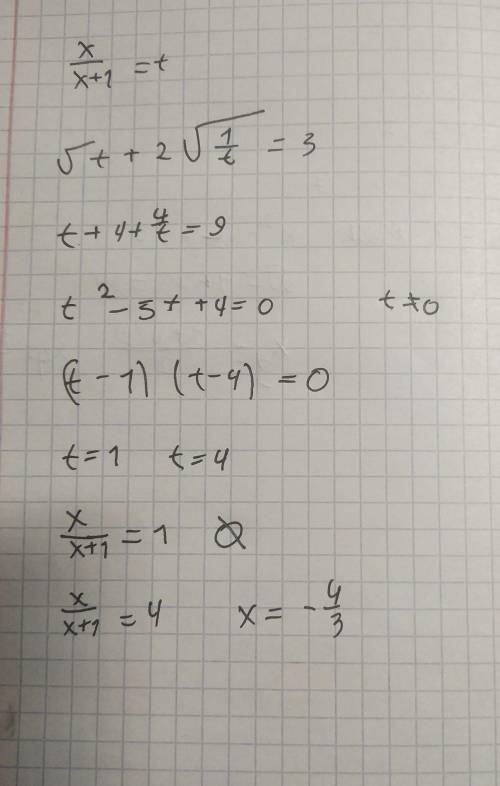 x/(x+1) = t
√t + 2√(1/t) = 3
t + 4 + 4/t = 9
t² - 5t + 4 = 0   t ≠ 0
(t - 1) (t - 4) = 0
t = 1   t = 4
x/(x+1) = 1   Ø
x/(x+1) = 4   x = -4/3